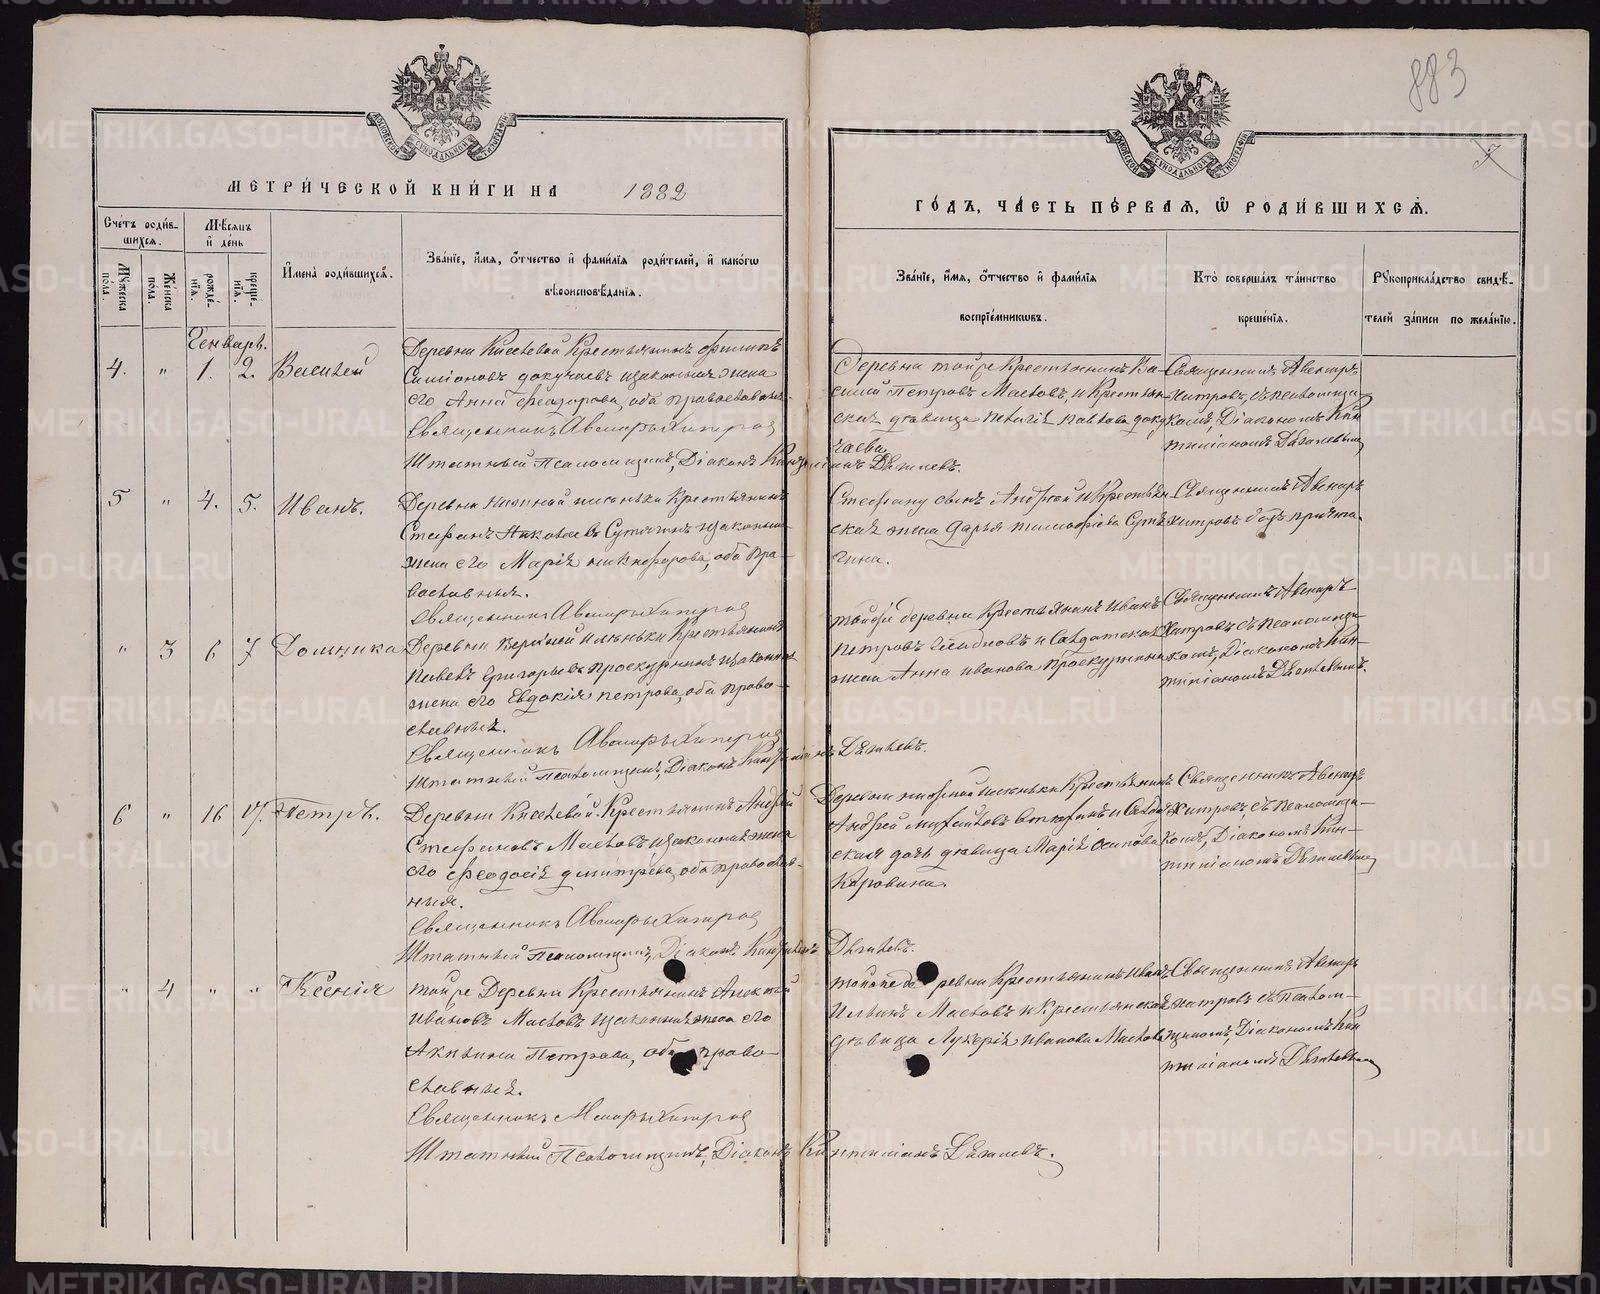 883
МОСКОВСКОЙ СѴНОДАЛЬНОЙ ТИПОГРАФІИ
МОСКОВСКОЙ СѴНОДАЛЬНОЙ ТИПОГРАФІИ
МЕТРИ́ЧЕСКОЙ КНИ́ГИ НА 1882
ГО́ДЪ, ЧА́СТЬ ПЕ́РВАЯ, Ѡ҆ РОДИ́ВШИХСЯ.
Сче́тъ роди́в-
шихся.
Мѣ́сяцъ
и҆ де́нь
Мꙋ́жеска по́ла.
Же́нска по́ла.
рожде́-
нїя.
креще-
нїя.
И҆мена̀ роди́вшихся.
Зва́нїе, и҆́мя, ѻ҆́тчество и҆ фами́лїя роди́телей, и҆ како́гѡ
вѣроисповѣ́данїя.
Зва́нїе, и҆́мя, ѻ҆́тчество и҆ фами́лїя
воспрїе́мникѡвъ.
Кто̀ соверша́лъ та́инство
креще́нїя.
Рꙋкоприкла́дство свидѣ́-
телей за́писи по жела́нїю.
Генварь.
4. " 1. 2. Василій
Деревни Киселевой Крестьянинъ Филипъ
Симіоновъ Докучаевъ и законная жена
его Анна Феодорова, оба православные.
Священникъ Авениръ Хитров
Штатный Псаломщикъ, Діаконъ Кинтиліанъ Дягилевъ.
Деревни той же Крестьянинъ Ва-
силій Петровъ Масловъ, и Крестьян-
ская девица Павлова Доку
чаева
Священникъ Авениръ
Хитровъ, съ псаломщи-
комъ, Діакономъ Кин
тиліаномъ Дягилевымъ
5 " 4. 5. Иванъ.
Деревни Крестьянинъ
Стефанъ Сутягинъ и законная
жена его Марія Никифорова, оба пра-
вославные.
Священникъ Авениръ Хитров
Стефану сынъ Андрей и Крестьян
ская жена Дарья Тимофіева Сутя
гина.
Священникъ Авениръ
Хитровъ безъ причта.
" 3 6 7 Домника
Деревни Верхней Крестьянинъ
Павелъ Григорьевъ Проскурнинъ и законная
жена его Евдокія Петрова, оба право-
славные.
Священникъ Авениръ Хитров
Штатный Псаломщикъ, Діаконъ Кинтиліанъ Дягилевъ.
той же деревни Крестьянинъ Иванъ
Петровъ и Солдатская
жена Анна Иванова Проскурнина
Священникъ Авениръ
Хитровъ съ псаломщи
комъ, Діакономъ Кин-
тиліаномъ Дягилевымъ.
6 " 16 17. Петръ.
Деревни Киселевой Крестьянинъ Андрей
Стефановъ Масловъ и законная жена
его Феодосія Дмитріева, оба православ-
ные.
Священникъ Авениръ Хитров
Штатный Псаломщикъ, Діаконъ Кинтиліанъ Дягилевъ.
Деревни Крестьянинъ
Андрей Михайловъ и Солдат
ская дочь девица Марія Осипова
Коровина.
Священникъ Авениръ
Хитровъ, съ псаломщи-
комъ, Діакономъ Кин-
тиліаномъ Дягилевымъ
" 4 " " Ксенія
той же Деревни Крестьянинъ Алексѣй
Ивановъ Масловъ и законная жена его
Акилина Петрова, оба право-
славные.
Священникъ Авениръ Хитров
Штатный Псаломщикъ, Діаконъ Кинтиліанъ Дягилевъ.
той же деревни Крестьянинъ Иванъ
Ильинъ Масловъ и Крестьянская
девица Лукерія Иванова Маслова
Священникъ Авениръ
Хитровъ съ псалом-
щикомъ, Діакономъ Кин
тиліаномъ Дягилевымъ
METRIKI.GASO-URAL.RU